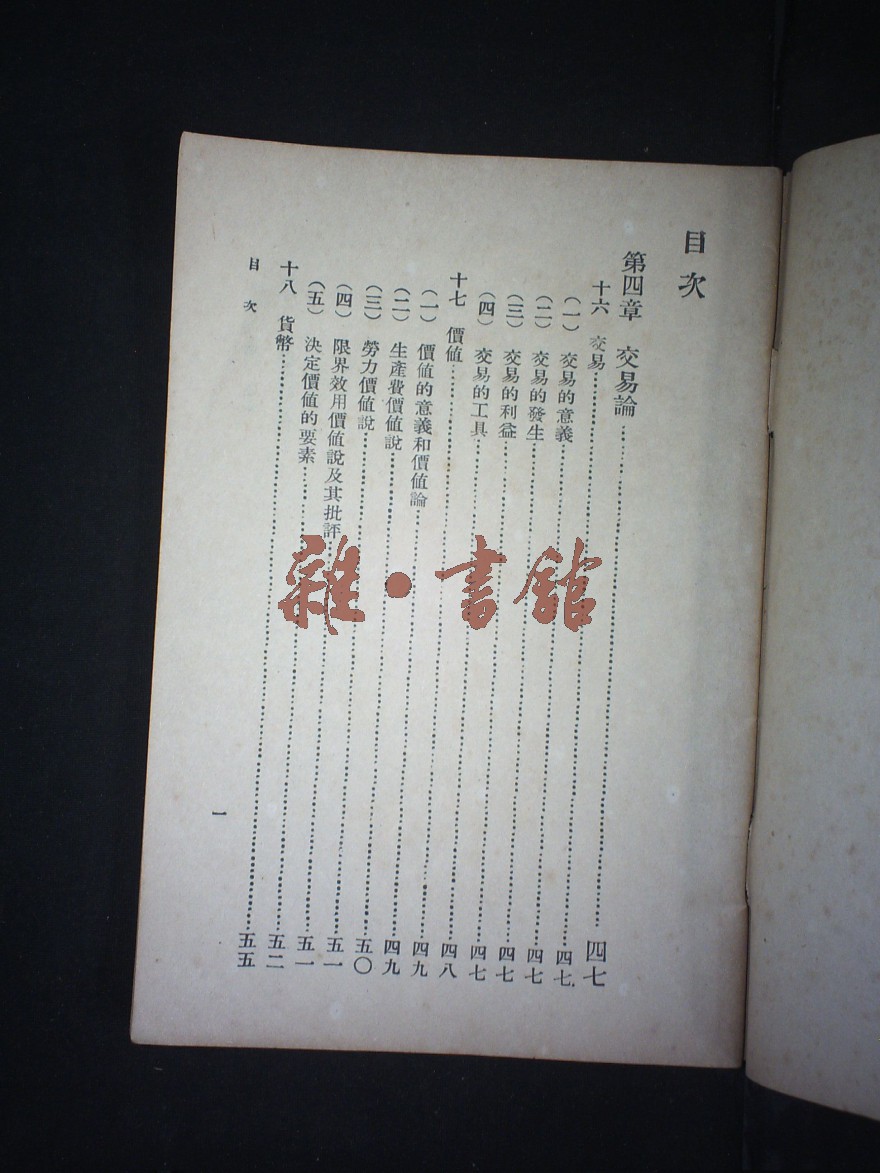 目次
第四章 交易論……四七
十六 交易……四七
(一) 交易的意義……四七
(二) 交易的發生……四七
(三) 交易的利益……四七
(四) 交易的工具……四八
十七 價值……四九
(一) 價值的意義和價值論……四九
(二) 生產費價值說……五〇
(三) 勞力價值說……五一
(四) 限界效用價值說及其批評……五一
(五) 決定價值的要素……五二
十八 貨幣……五五
目次
一
雜·書館